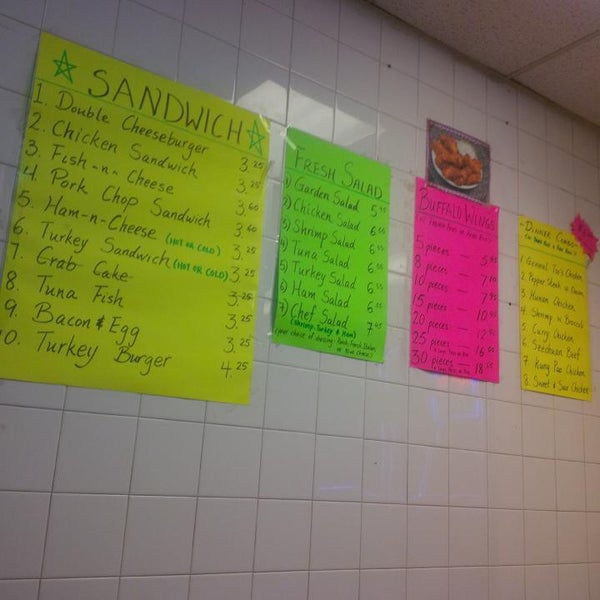 SANDWICH
1. Double Cheeseburger 3.25
2. Chicken Sandwich 3.25
3. Fish-n-Cheese 3.60
4. Pork Chop Sandwich 3.60
5. Ham-n-Cheese (HOT OR COLD) 3.25
6. Turkey Sandwich (HOT OR COLD) 3.25
7. Crab Cake 3.25
8. Tuna Fish 3.25
9. Bacon & Egg 3.25
0. Turkey Burger 4.25
FRESH SALAD
1) Garden Salad
2) Chicken Salad
3) Shrimp Salad
4) Tuna Salad
5) Turkey Salad
6) Ham Salad
7) Chef Salad 7.95
(Shrimp, Turkey & Ham)
(Your choice of dressing: Ranch, French, Italian
or Blue Cheese)
BUFFALO WINGS
5 pieces — 5.95
8 pieces —
10 pieces —
15 pieces — 10.95
20 pieces —
25 pieces —
30 pieces —
DINNER COMBO
1 General Tso's Chicken
2 Pepper Steak w Onion
3 Hunan Chicken
4 Shrimp w Broccoli
5 Curry Chicken
6 Szechuan Beef
7 Kung Pao Chicken
8 Sweet & Sour Chicken